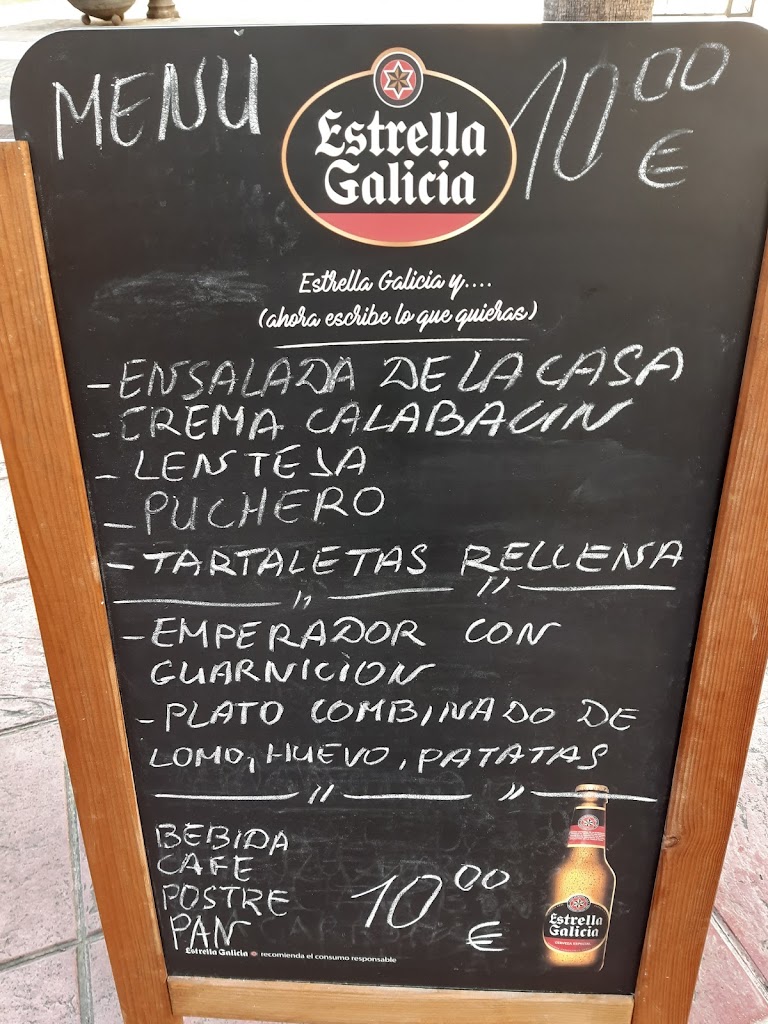 MENU 10,00 €
Estrella
Galicia
Estrella Galicia y....
(ahora escribe lo que quieras)
- ENSALADA DE LA CASA
- CREMA CALABACIN
- LENTEJA
- PUCHERO
- TARTALETAS RELLENA
- EMPERADOR CON
GUARNICION
- PLATO COMBINADO DE
LOMO, HUEVO, PATATAS
BEBIDA
CAFE
POSTRE
PAN
10,00 €
Estrella
Galicia
Estrella Galicia recomienda el consumo responsable